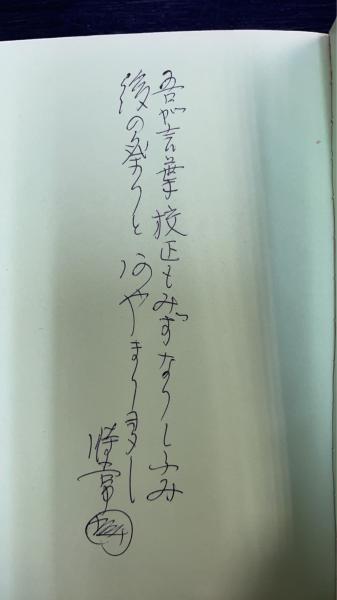 吾が言葉校正もみずなりしふみ
後の祭りとあやまり多し